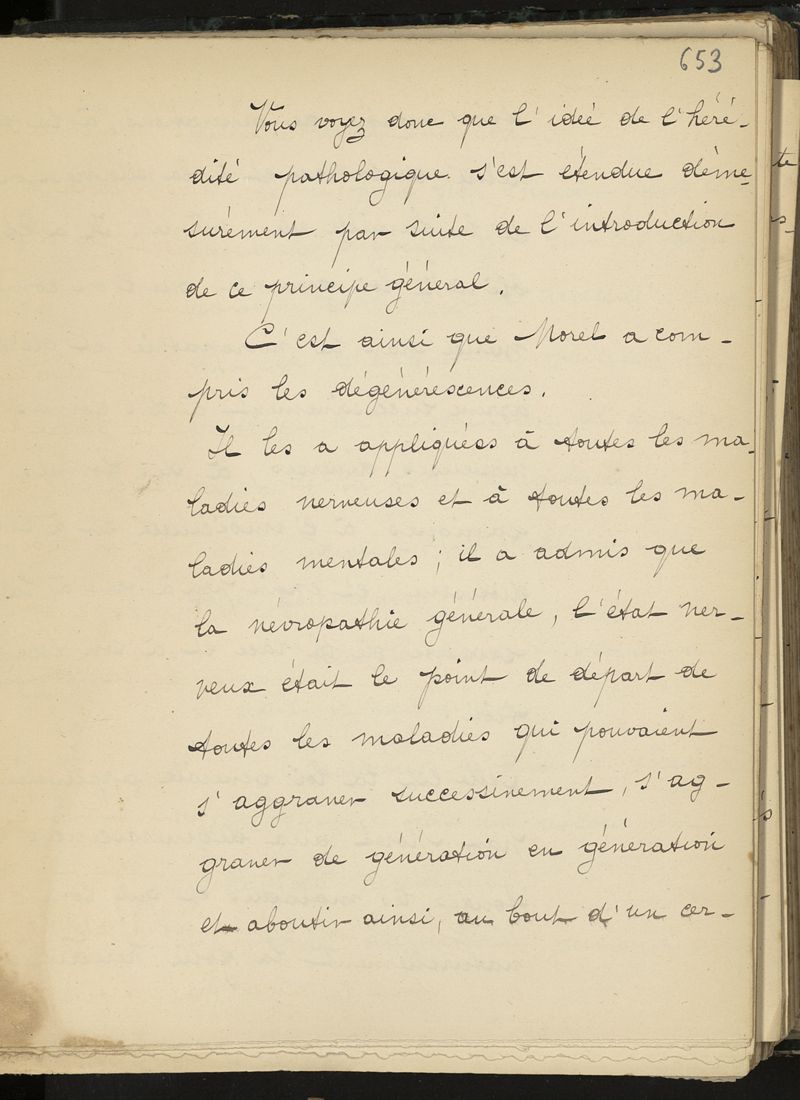 653
Vous voyez donc que l'idée de l'héré-
dité pathologique s'est étendue déme-
surément par suite de l'introduction
de ce principe général.
C'est ainsi que Morel a com-
pris les dégénérescences.
Il les a appliquées à toutes les ma-
ladies nerveuses et à toutes les ma-
ladies mentales ; il a admis que
la névropathie générale, l'état ner-
veux était le point de départ de
toutes les maladies qui pouvaient
s'aggraver successivement, s'ag-
graver de génération en génération
et aboutir ainsi, au bout d'un cer-